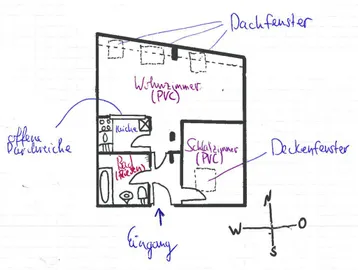 Dachfenster
Wohnzimmer
(PVC)
offene
Durchreiche
Küche
Schlafzimmer
(PVC)
Bad
(Fliesen)
Deckenfenster
Eingang
N
W
O
S